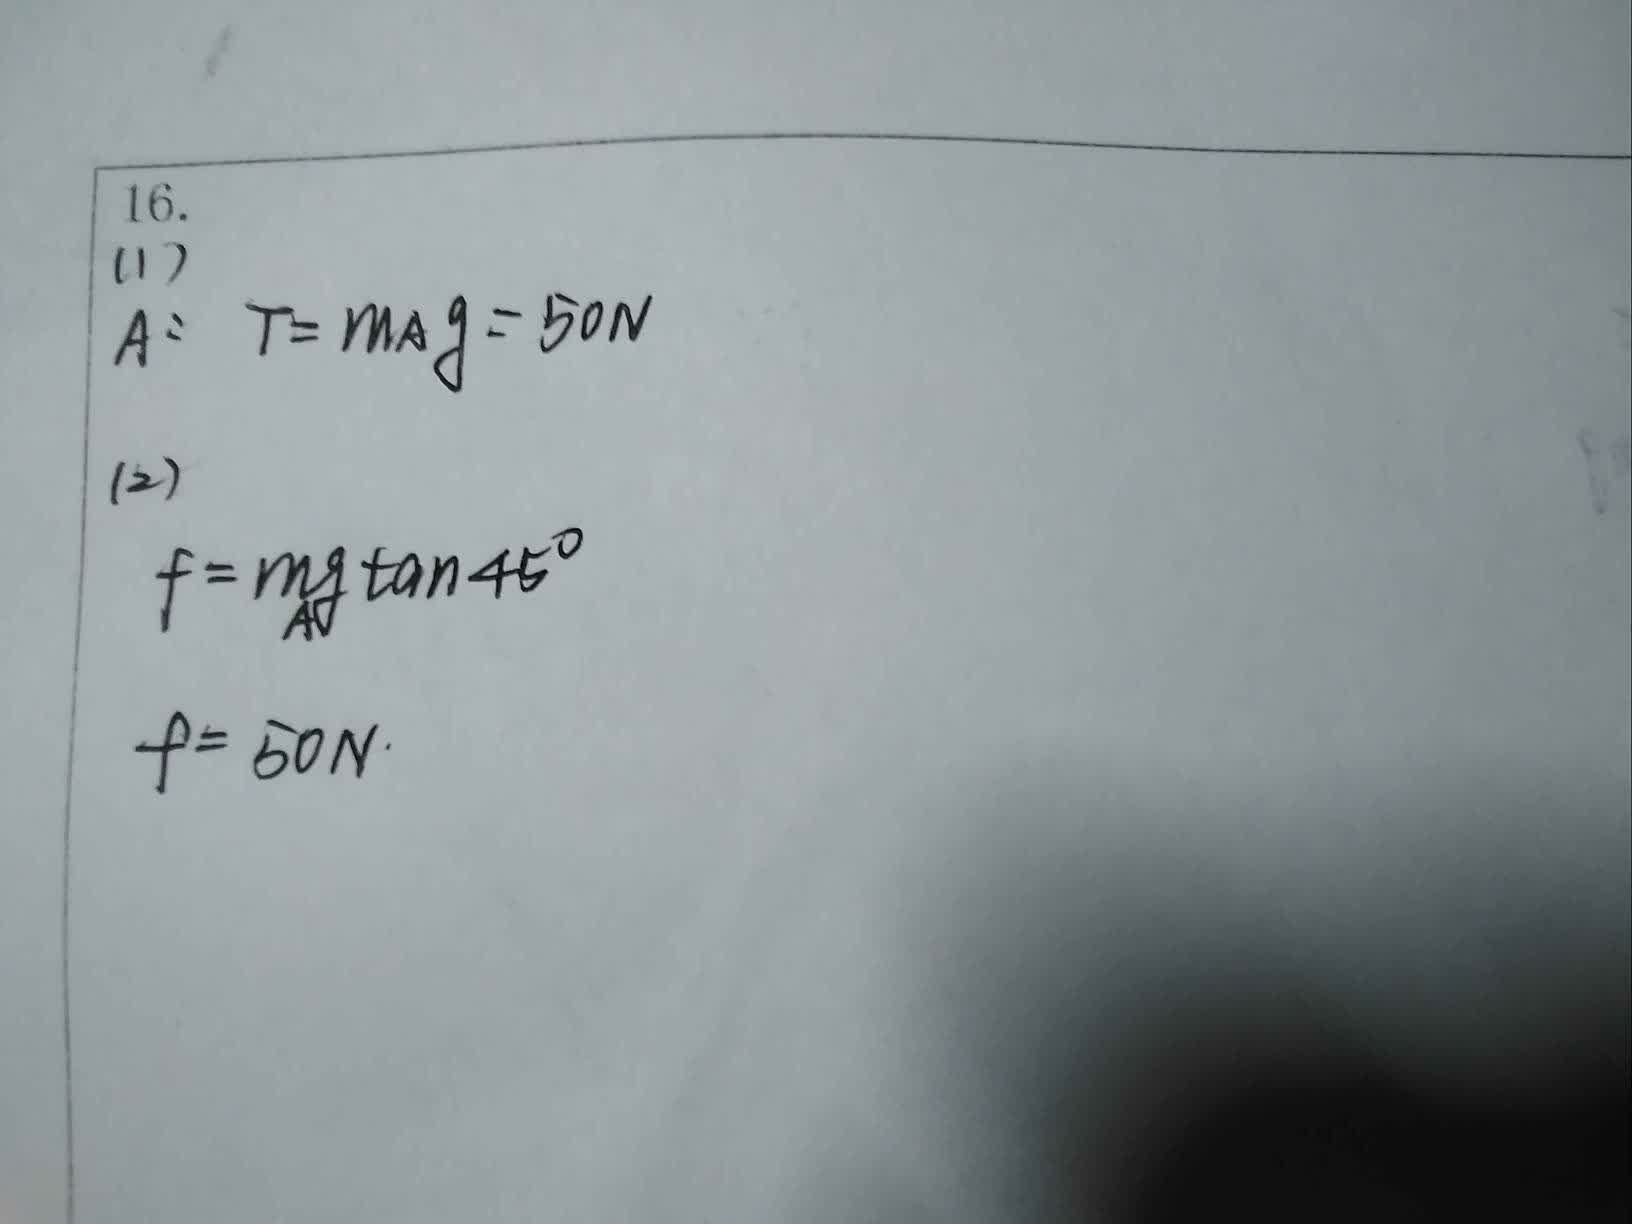 16.
(1)
A: T=mAg=50N
(2)
f=mAg tan45°
f=50N.